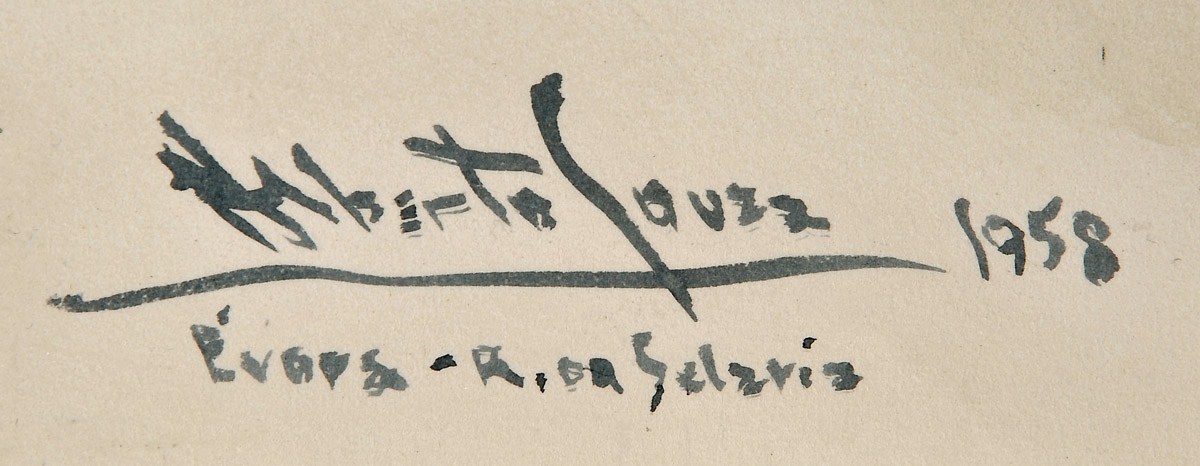 Alberto Souza 1958
Évora - R. da Selaria